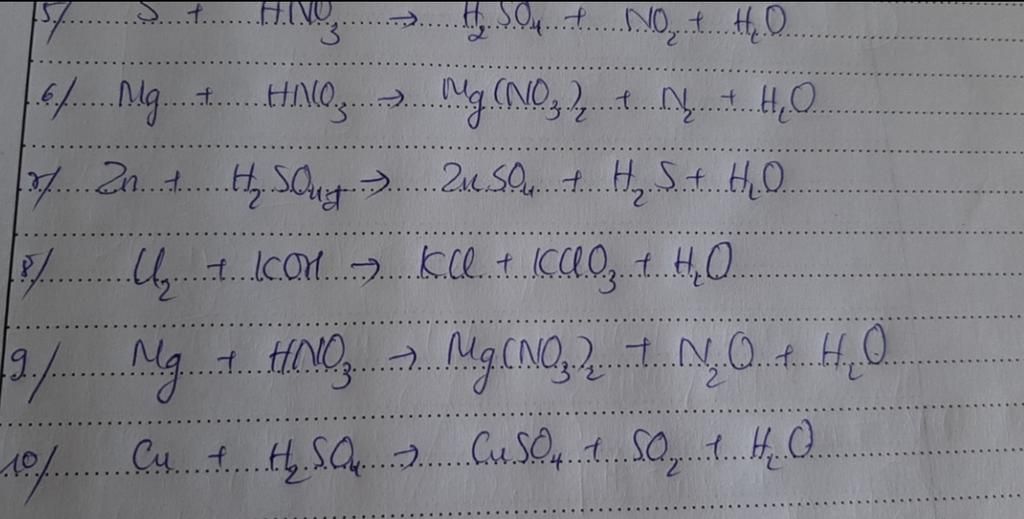 5/ S + HNO3 → H2SO4 + NO2 + H2O
6/ Mg + HNO3 → Mg(NO3)2 + N2 + H2O
7/ Zn + H2SO4đ → ZnSO4 + H2S + H2O
8/ Cl2 + KOH → KCl + KClO3 + H2O
9/ Mg + HNO3 → Mg(NO3)2 + N2O + H2O
10/ Cu + H2SO4 → CuSO4 + SO2 + H2O